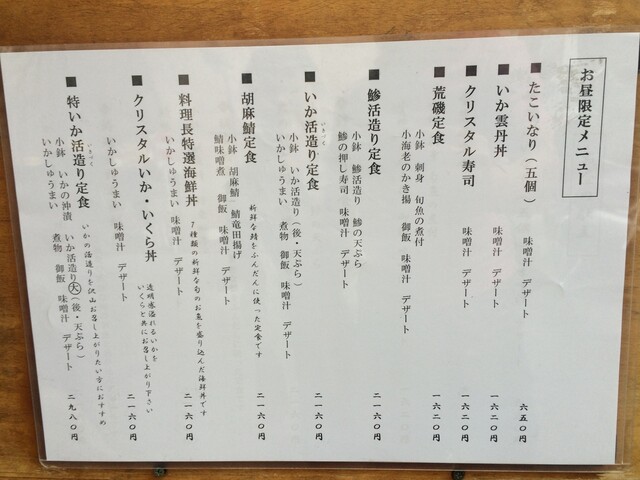 お昼限定メニュー
■たこいなり（五個） 味噌汁 デザート 六五〇円
■いか雲丹丼 味噌汁 デザート 一六二〇円
■クリスタル寿司 味噌汁 デザート 一六二〇円
■荒磯定食 一六二〇円
小鉢 刺身 旬魚の煮付
小海老のかき揚 御飯 味噌汁 デザート
■鯵活造り定食 二一六〇円
小鉢 鯵活造り 鯵の天ぷら
鯵の押し寿司 味噌汁 デザート
■いか活造り定食 二一六〇円
いきづく
小鉢 いか活造り（後・天ぷら）
いかしゅうまい 煮物 御飯 味噌汁 デザート
■胡麻鯖定食 新鮮な鯖をふんだんに使った定食です 二一六〇円
小鉢 胡麻鯖 鯖竜田揚げ
鯖味噌煮 御飯 味噌汁 デザート
■料理長特選海鮮丼 7種類の新鮮な旬のお魚を盛り込んだ海鮮丼です 二一六〇円
いかしゅうまい 味噌汁 デザート
■クリスタルいか・いくら丼 透明感溢れるいかを
いくらと共にお召し上がり下さい 二一六〇円
いかしゅうまい 味噌汁 デザート
■特いか活造り定食 いかの活造りを沢山お召し上がりたい方におすすめ 二九八〇円
いきづく
小鉢 いかの沖漬 いか活造り大（後・天ぷら）
いかしゅうまい 煮物 御飯 味噌汁 デザート